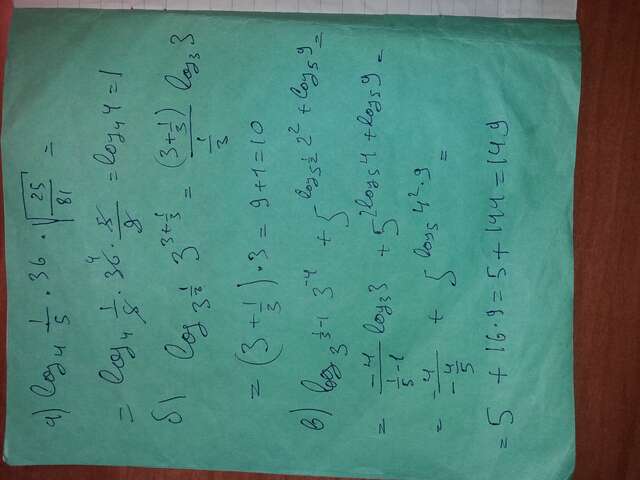 а) log₄ 1/5 · 36 · √(25/81) =
= log₄ 1/5 · 36⁴ · 5/9 = log₄ 4 = 1
б) log_{3^{1/3}} 3^{3+1/3} = (3+1/3)/(1/3) log₃ 3
= (3 + 1/3) · 3 = 9 + 1 = 10
в) log_{3^{1/5-1}} 3⁻⁴ + 5^{log_{5^{1/2}} 2² + log₅ 9} =
= -4/(1/5-1) log₃ 3 + 5^{2log₅ 4 + log₅ 9} =
= -4/(-4/5) + 5^{log₅ 4² · 9} =
= 5 + 16 · 9 = 5 + 144 = 149